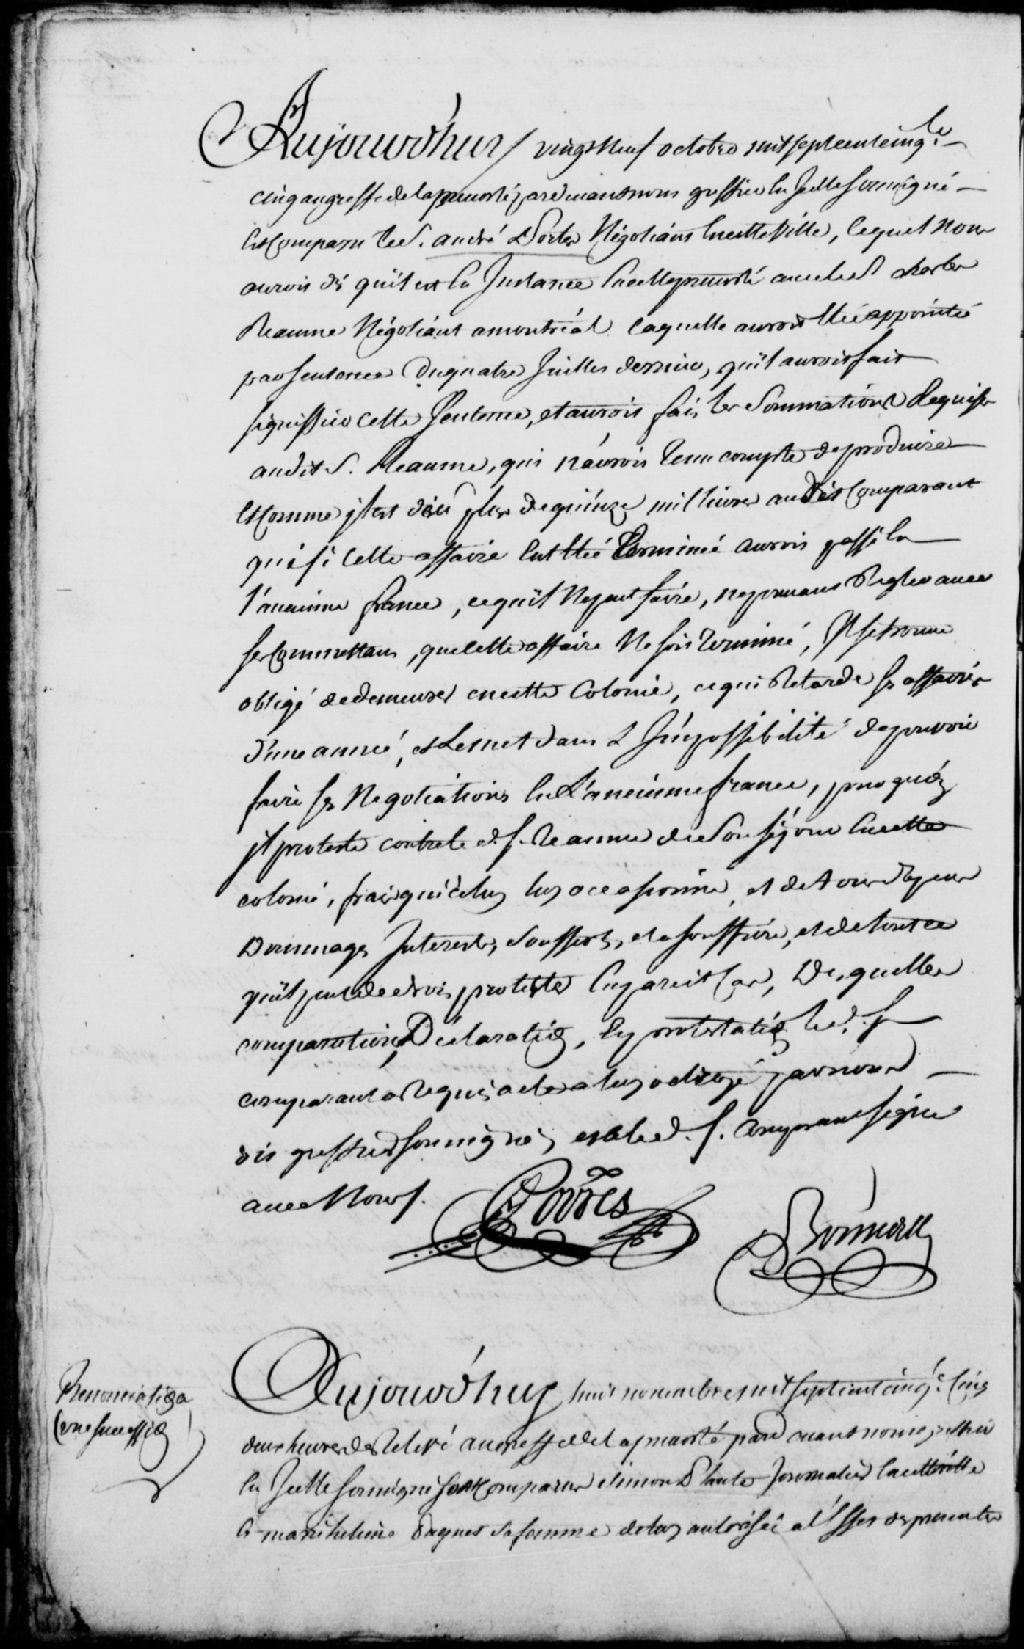 Aujourd'huy vingt neuf octobre mil sept cent cinqte
cinq au greffe de la prevosté pardevant nous greffier en icelle soussigné
est comparu le S. andré Dorter Négotiant en cette ville, lequel nous
auroit dit qu'il est en Instance en cette prevosté avec le S. charles
Reaume Négotiant a montréal laquelle auroit été appointée
par sentence du quatre Juillet dernier, qu'il auroit fait
signiffier cette sentence, et auroit fait les sommations Requises
audit S. Reaume, qui n'auroit tenu compte de produire
et comme jl est deu plus de quinze mil livres audit Comparant
qui si cette affaire eut été terminée auroit passé en
l'ancienne france, ce qu'il ne peut faire, ne pouvant Regler avec
ses Commettans, que cette affaire ne soit terminé, Il se trouve
obligé de demeurer en cette Colonie, ce qui Retarde ses affaires
d'une année, et le met dans L'Impossibilité de pouvoir
faire ses Negotiations en L'ancienne france, pourquoy
jl proteste contre le d. S. Reaume de son séjour en cette
colonie, frais qu'icelui luy occasionne, et de tous depens
Dommages Interests, soufferts, et a souffrir, et de tout ce
qu'il peut de droit protester en pareil cas, Desquelles
comparution, Déclaration, et protestation le d. S.
comparant a Requis acte a luy octroyé par nous
dit greffier soussigné, et a le d. S. Comparant signé
avec Nous/.
Boisseau
Renonciation a
une succession
Aujourd'huy huit novembre mil sept cent cinqte. Cinq
deux heures de Relevé au greffe de la prevosté pardevant nous greffier
en icelle soussigné sont Comparus Simon Plante Journalier en cette ville
et marie helene sa femme de luy autorisée a l'effet des presentes